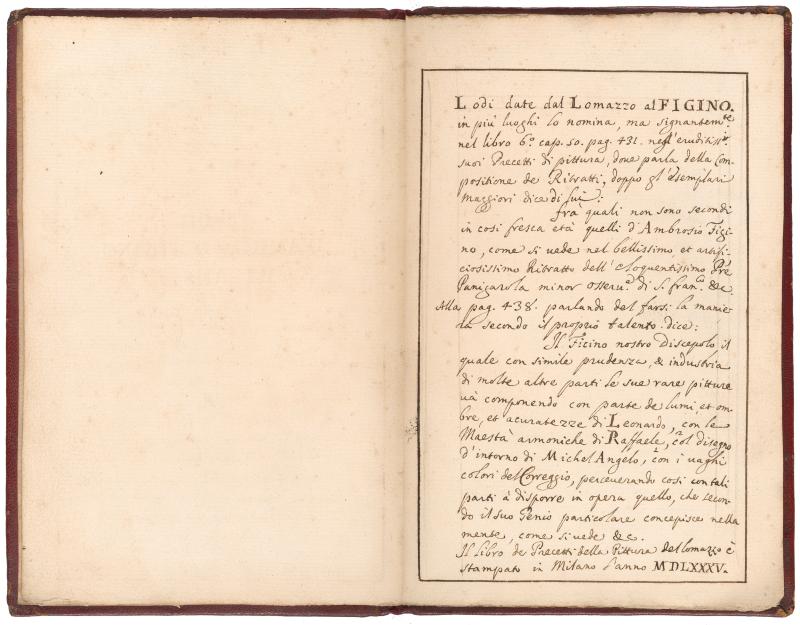 Lodi date dal Lomazzo al FIGINO.
in più luoghi lo nomina, ma signantem.te
nel libro 6.o cap. 50. pag. 431. negl'eruditiss.i
suoi Precetti di pittura, doue parla della Com-
positione de Ritratti, doppo gl'esemplari
maggiori dice di lui:
frà quali non sono secondi
in cosi fresca età quelli d'Ambrosio Figi-
no, come si vede nel bellissimo et artifi-
ciosissimo Ritratto dell'eloquentissimo Pre
Panigarola minor osseru.te di S. Fran.co &c.
Alla pag. 438. parlando del farsi la manie-
ra secondo il proprio talento dice:
Il Ficino nostro Discepolo il
quale con simile prudenza, & industria
di molte altre parti le sue rare pitture
uà componendo con parte de lumi, et om-
bre, et acuratezze di Leonardo, con le
Maestà armoniche di Raffaele, col disegno
d'intorno di MichelAngelo, con i uaghi
colori del Correggio, perceuerando cosi con tali
parti à disporre in opera quello, che secon-
do il suo Genio particolare concepisce nella
mente, come si vede &c.
Il libro de Precetti della Pittura del Lomazzo è
stampato in Milano l'anno MDLXXXV.